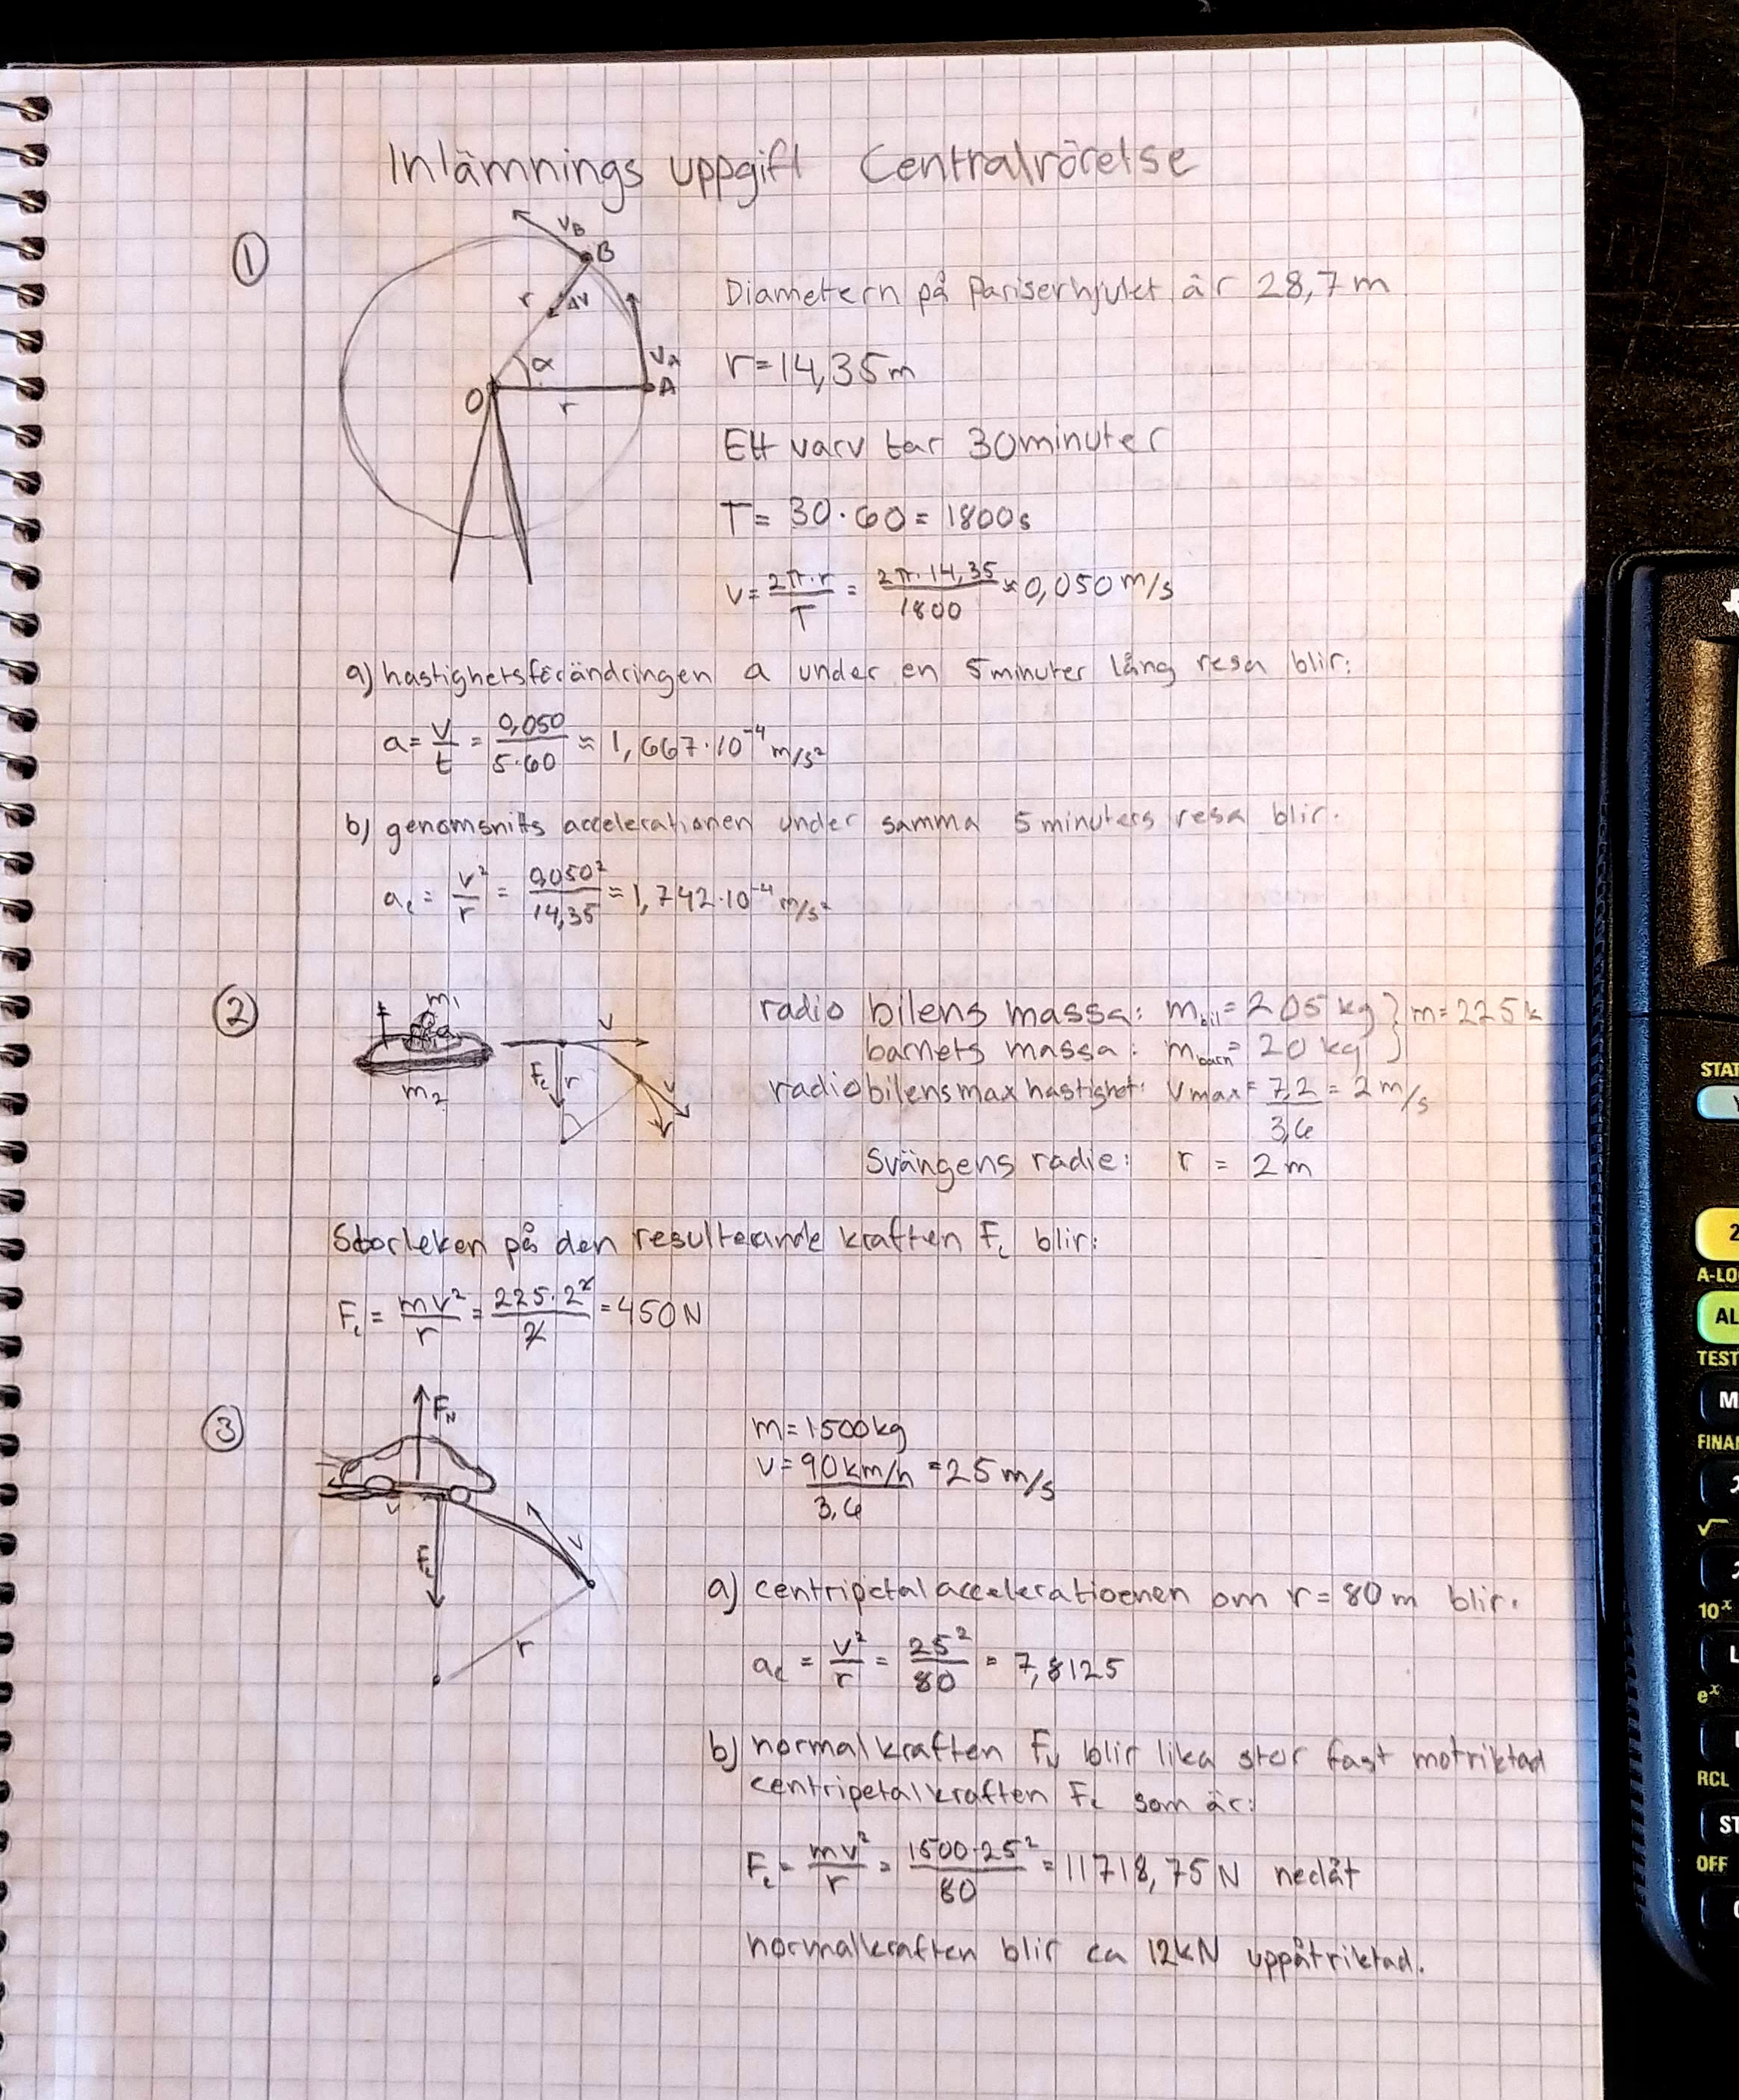 Inlämnings uppgift Centralrörelse
①
v_B
B
r
Δv
α
v_A
O
r
A
Diametern på Pariserhjulet är 28,7 m
r = 14,35 m
Ett varv tar 30 minuter
T = 30 · 60 = 1800 s
v = 2π·r / T = 2π·14,35 / 1800 ≈ 0,050 m/s
a) hastighetsförändringen a under en 5 minuter lång resa blir:
a = v / t = 0,050 / 5·60 ≈ 1,667·10⁻⁴ m/s²
b) genomsnitts accelerationen under samma 5 minuters resa blir.
a_c = v² / r = 0,050² / 14,35 ≈ 1,742·10⁻⁴ m/s²
②
m₁
m₂
v
F_c
r
v
radio bilens massa: m_bil = 205 kg } m = 225 k
barnets massa: m_barn = 20 kg }
radiobilens max hastighet: v max = 7,2 / 3,6 = 2 m/s
Svängens radie: r = 2 m
Storleken på den resulterande kraften F_c blir:
F_c = mv² / r = 225·2² / 2 = 450 N
③
F_N
v
F_c
v
r
m = 1500 kg
v = 90 km/h / 3,6 = 25 m/s
a) centripetalacceleratioenen om r = 80 m blir.
a_c = v² / r = 25² / 80 = 7,8125
b) normalkraften F_N blir lika stor fast motriktad
centripetalkraften F_c som är:
F_c = mv² / r = 1500·25² / 80 = 11718,75 N nedåt
normalkraften blir ca 12 kN uppåtriktad.
STAT
2
A-LO
AL
TEST
M
FINAN
√
10ˣ
L
eˣ
RCL
ST
OFF